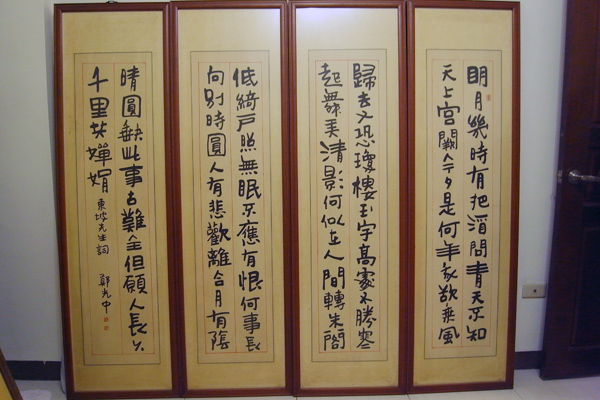 明月幾時有把酒問青天不知
天上宮闕今夕是何年我欲乘風
歸去又恐瓊樓玉宇高處不勝寒
起舞弄清影何似在人間轉朱閣
低綺戶照無眠不應有恨何事長
向別時圓人有悲歡離合月有陰
晴圓缺此事古難全但願人長久
千里共嬋娟 東坡先生詞 鄭光中